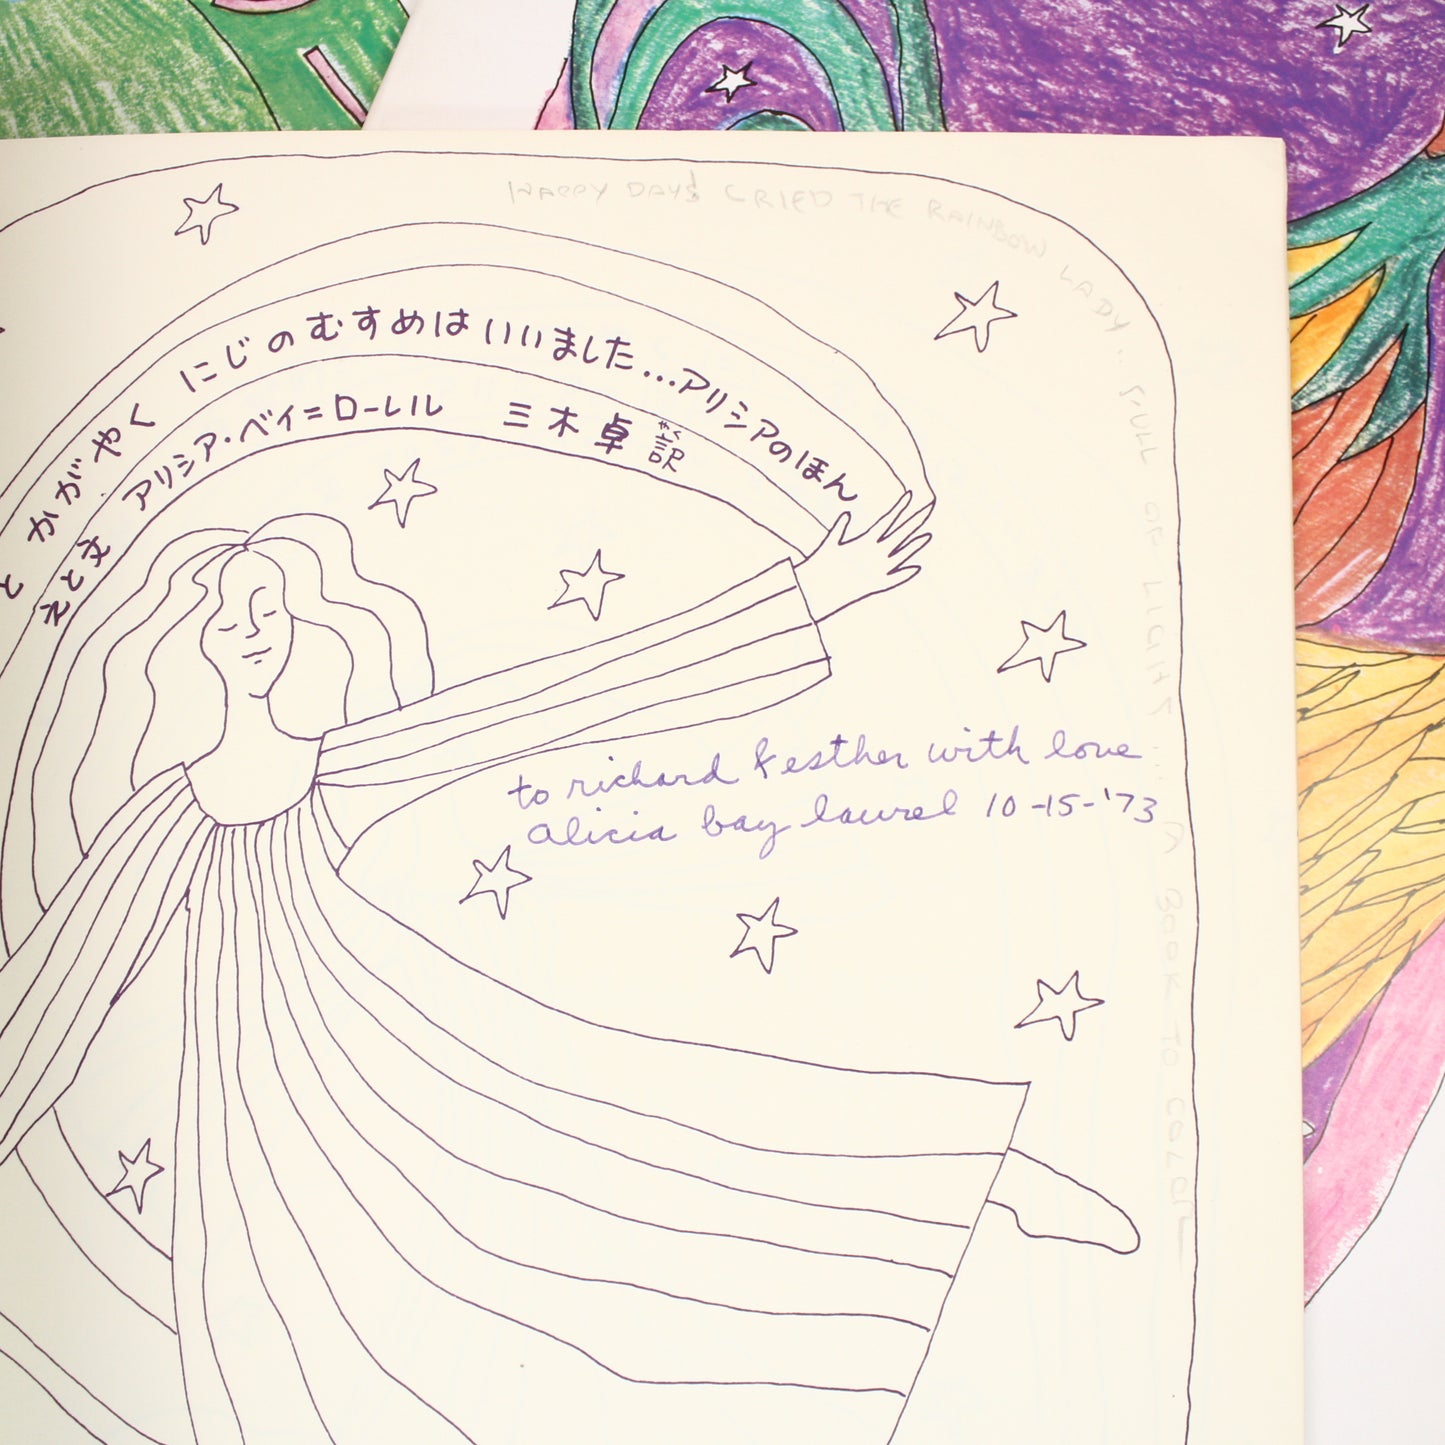 HAPPY DAYS CRIED THE RAINBOW LADY.. FULL OF LIGHT ... A BOOK TO COLOR
と かがやく にじのむすめはいいました...アリシアのほん
えと文 アリシア・ベイ=ローレル 三木卓訳
やく
to richard & esther with love
alicia bay laurel 10-15-'73